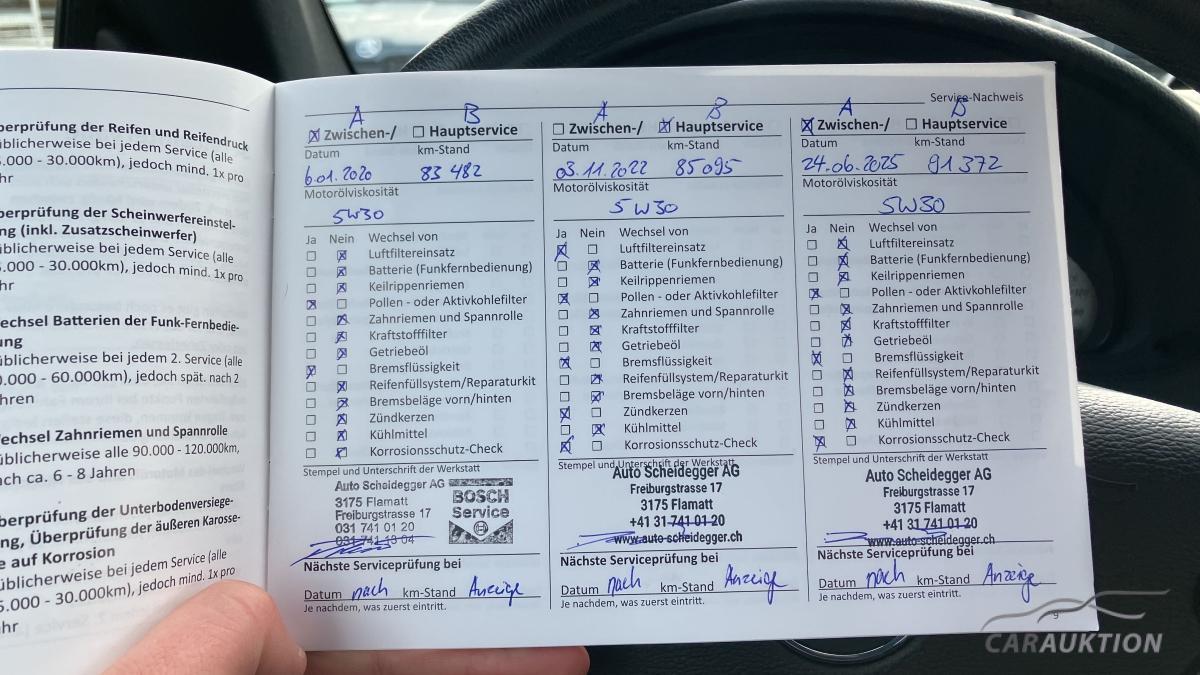 berprüfung der Reifen und Reifendruck
üblicherweise bei jedem Service (alle
5.000 - 30.000km), jedoch mind. 1x pro
hr
berprüfung der Scheinwerfereinstel-
ng (inkl. Zusatzscheinwerfer)
üblicherweise bei jedem Service (alle
5.000 - 30.000km), jedoch mind. 1x pro
hr
echsel Batterien der Funk-Fernbedie-
ung
üblicherweise bei jedem 2. Service (alle
0.000 - 60.000km), jedoch spät. nach 2
hren
echsel Zahnriemen und Spannrolle
üblicherweise alle 90.000 - 120.000km,
ach ca. 6 - 8 Jahren
berprüfung der Unterbodenversiege-
ng, Überprüfung der äußeren Karosse-
e auf Korrosion
üblicherweise bei jedem Service (alle
5.000 - 30.000km), jedoch mind. 1x pro
hr
Service-Nachweis
A B
Zwischen-/ Hauptservice
Datum km-Stand
6.01.2020 83 482
Motorölviskosität
5W30
Ja Nein Wechsel von
Luftfiltereinsatz
Batterie (Funkfernbedienung)
Keilrippenriemen
Pollen - oder Aktivkohlefilter
Zahnriemen und Spannrolle
Kraftstofffilter
Getriebeöl
Bremsflüssigkeit
Reifenfüllsystem/Reparaturkit
Bremsbeläge vorn/hinten
Zündkerzen
Kühlmittel
Korrosionsschutz-Check
Stempel und Unterschrift der Werkstatt
Auto Scheidegger AG
3175 Flamatt
Freiburgstrasse 17
031 741 01 20
031 741 13 04
BOSCH
Service
Nächste Serviceprüfung bei
Datum nach km-Stand Anzeige
Je nachdem, was zuerst eintritt.
A B
Zwischen-/ Hauptservice
Datum km-Stand
03.11.2022 85095
Motorölviskosität
5W30
Ja Nein Wechsel von
Luftfiltereinsatz
Batterie (Funkfernbedienung)
Keilrippenriemen
Pollen - oder Aktivkohlefilter
Zahnriemen und Spannrolle
Kraftstofffilter
Getriebeöl
Bremsflüssigkeit
Reifenfüllsystem/Reparaturkit
Bremsbeläge vorn/hinten
Zündkerzen
Kühlmittel
Korrosionsschutz-Check
Stempel und Unterschrift der Werkstatt
Auto Scheidegger AG
Freiburgstrasse 17
3175 Flamatt
+41 31 741 01 20
www.auto-scheidegger.ch
Nächste Serviceprüfung bei
Datum nach km-Stand Anzeige
Je nachdem, was zuerst eintritt.
A B
Zwischen-/ Hauptservice
Datum km-Stand
24.06.2025 91 372
Motorölviskosität
5W30
Ja Nein Wechsel von
Luftfiltereinsatz
Batterie (Funkfernbedienung)
Keilrippenriemen
Pollen - oder Aktivkohlefilter
Zahnriemen und Spannrolle
Kraftstofffilter
Getriebeöl
Bremsflüssigkeit
Reifenfüllsystem/Reparaturkit
Bremsbeläge vorn/hinten
Zündkerzen
Kühlmittel
Korrosionsschutz-Check
Stempel und Unterschrift der Werkstatt
Auto Scheidegger AG
Freiburgstrasse 17
3175 Flamatt
+41 31 741 01 20
www.auto-scheidegger.ch
Nächste Serviceprüfung bei
Datum nach km-Stand Anzeige
Je nachdem, was zuerst eintritt.
9
CARAUKTION